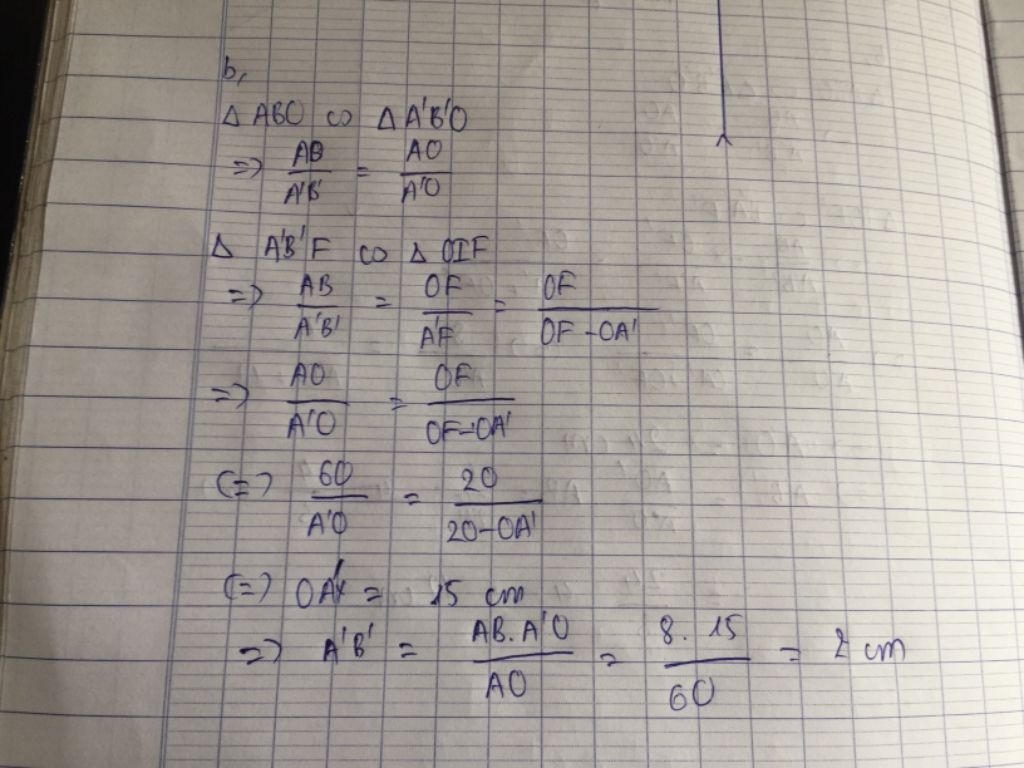 b,
Δ ABO ∽ Δ A'B'O
=> AB/A'B' = AO/A'O
Δ A'B'F ∽ Δ OIF
=> AB/A'B' = OF/A'F = OF/OF-OA'
=> AO/A'O = OF/OF-OA'
(=) 60/A'O = 20/20-OA'
(=) OA' = 15 cm
=> A'B' = AB.A'O/AO = 8.15/60 = 2 cm